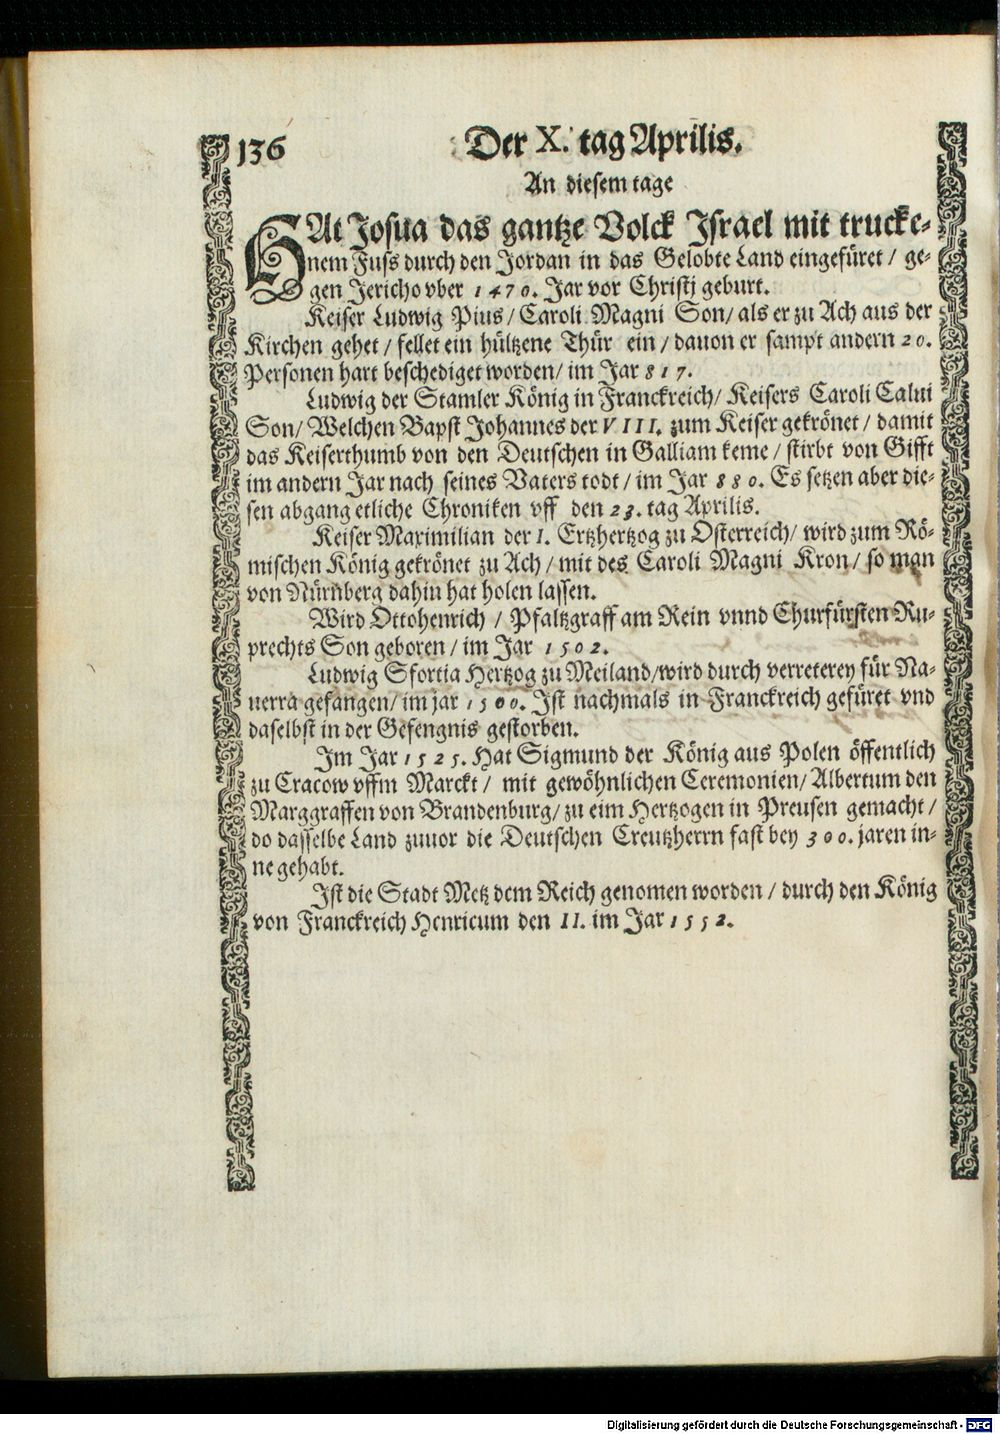 136
Der X. tag Aprilis.
An diesem tage
HAt Josua das gantze Volck Israel mit trucke-
nem Fuss durch den Jordan in das Gelobte Land eingefüret / ge-
gen Jericho vber 1470. Jar vor Christj geburt.
Keiser Ludwig Pius / Caroli Magni Son / als er zu Ach aus der
Kirchen gehet / fellet ein hültzene Thür ein / dauon er sampt andern 20.
Personen hart beschediget worden / im Jar 817.
Ludwig der Stamler König in Franckreich / Keisers Caroli Calui
Son / Welchen Bapst Johannes der VIII. zum Keiser gekrönet / damit
das Keiserthumb von den Deutschen in Galliam keme / stirbt von Gifft
im andern Jar nach seines Vaters todt / im Jar 880. Es setzen aber die-
sen abgang etliche Chroniken vff den 23. tag Aprilis.
Keiser Maximilian der I. Ertzhertzog zu Osterreich / wird zum Rö-
mischen König gekrönet zu Ach / mit des Caroli Magni Kron / so man
von Nürnberg dahin hat holen lassen.
Wird Ottohenrich / Pfaltzgraff am Rein vnnd Churfürsten Ru-
prechts Son geboren / im Jar 1502.
Ludwig Sfortia Hertzog zu Meiland / wird durch verreterey für Na-
uerra gefangen / im jar 1500. Ist nachmals in Franckreich gefüret vnd
daselbst in der Gefengnis gestorben.
Im Jar 1525. Hat Sigmund der König aus Polen öffentlich
zu Cracow vffm Marckt / mit gewöhnlichen Ceremonien / Albertum den
Marggraffen von Brandenburg / zu eim Hertzogen in Preusen gemacht /
do dasselbe Land zuuor die Deutschen Creutzherrn fast bey 300. jaren in-
ne gehabt.
Ist die Stadt Metz dem Reich genomen worden / durch den König
von Franckreich Henricum den II. im Jar 1552.
Digitalisierung gefördert durch die Deutsche Forschungsgemeinschaft - DFG